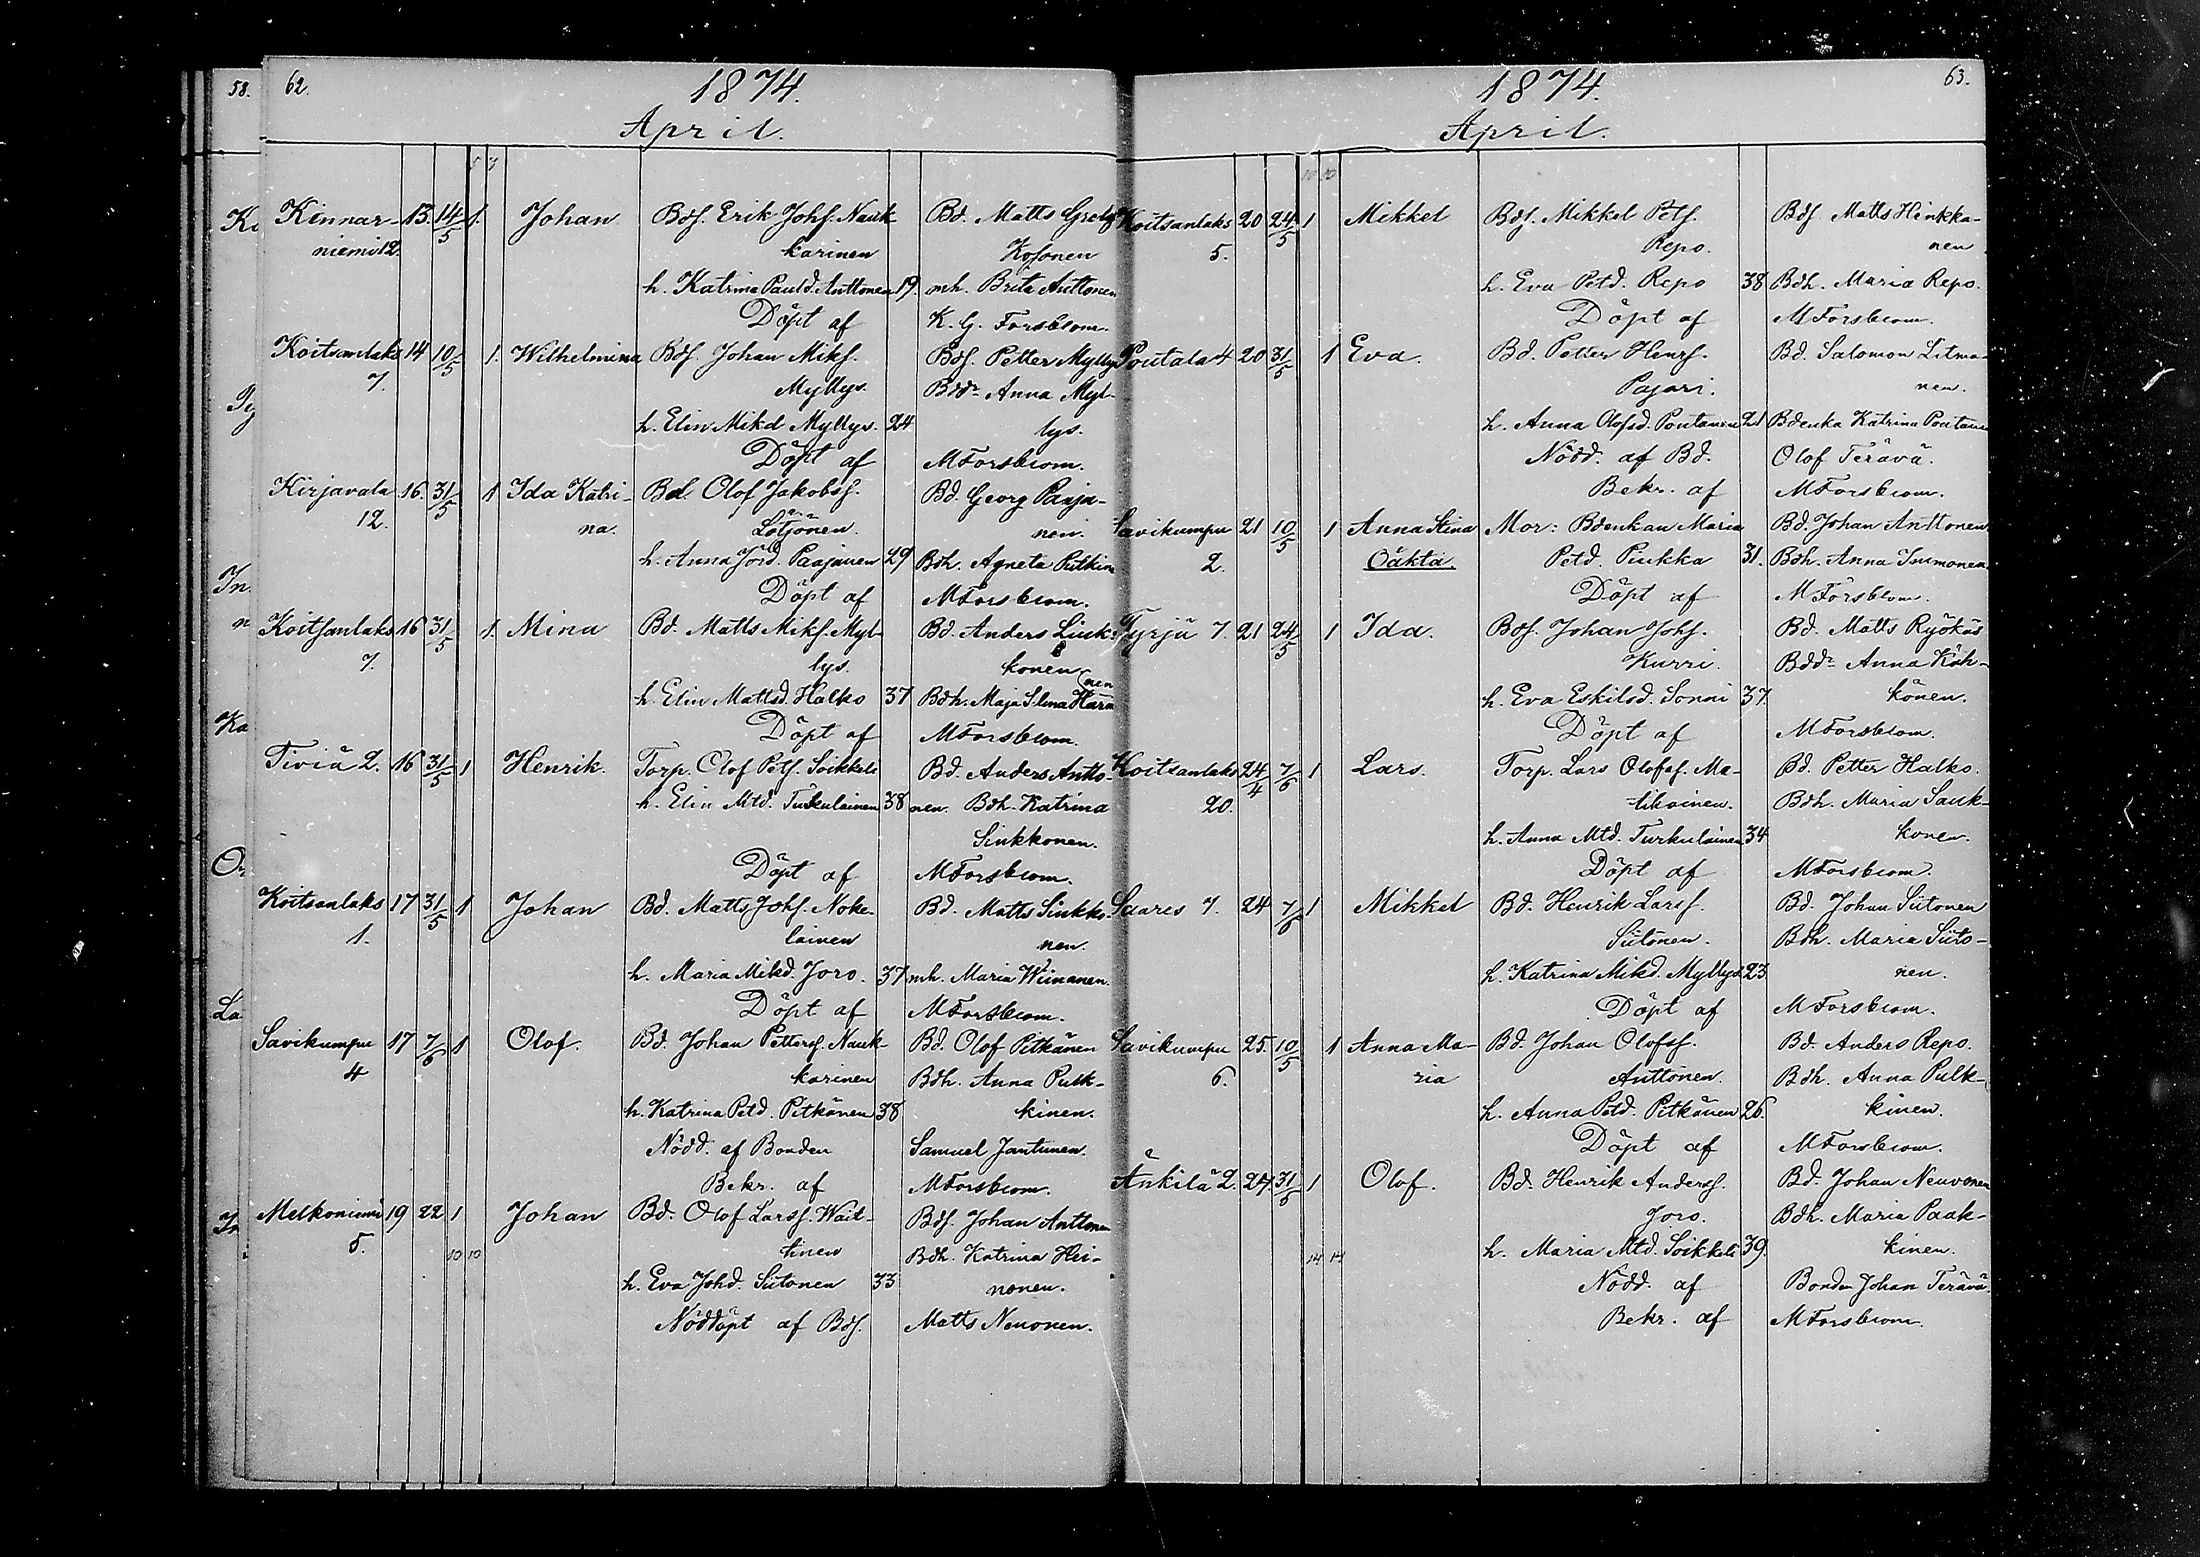 58.
62.
1874.
April.
5 7
Kinnar- 13. 14/5 1. Johan Bdf. Erik Johf. Nauk- Bd. Matts Gre
niemi 12. karinen Kosonen
h. Katrina Pauld. Anttonen 19. mh. Brita Anttonen
Döpt af K. G. Forsblom.
Koitsanlaks 14 10/5 1. Wilhelmina Bdf. Johan Mikf. Bdf. Petter Myllys
7. Myllys. Bddr Anna Myl-
h. Elin Mikd Myllys. 24 lys.
Döpt af MForsblom.
Kirjavala 16. 31/5 1 Ida Katri- Bd. Olof Jakobsf. Bd. Georg Paaja-
12. na. Lötjönen. nen.
h. Anna Jörd. Paajanen 29 Bdh. Agneta Pulkin
Döpt af MForsblom.
Koitsanlaks 16 31/5 1. Mina Bd. Matts Mikf. Myl- Bd. Anders Liuk-
7. lys. konen
h. Elin Mattsd. Halko 37 Bdh. Maja Slina
Döpt af MForsblom.
Tiviä 2. 16 31/5 1 Henrik. Torp. Olof Petf. Soikkeli Bd. Anders Antto-
h. Elin Mtd. Turkulainen 38 nen. Bdh. Katrina
Sinkkonen.
Döpt af MForsblom.
Koitsanlaks 17 31/5 1 Johan Bd. Matts Johf. Noke- Bd. Matts Sinkko-
1. lainen nen.
h. Maria Mikd. Joro. 37 mh. Maria Wiinanen.
Döpt af MForsblom.
Savikumpu 17 7/6 1 Olof. Bd. Johan Pettersf. Nauk- Bd. Olof Pitkänen
4 karinen Bdh. Anna Pulk-
h. Katrina Petd. Pitkänen 38 kinen.
Nödd. af Bonden Samuel Jantunen.
Bekr. af MForsblom.
Melkoniemi 19 22 1 Johan Bd. Olof Larsf. Wait- Bdf. Johan Anttonen
5. tinen Bdh. Katrina Hei-
10 10
h. Eva Johd. Siitonen 33 nonen.
Nöddöpt af Bdf. Matts Neuonen.
63.
1874.
April.
10 10
Koitsanlaks 20 24/5 1 Mikkel Bdf. Mikkel Petf. Bdf. Matts Hinkka-
5. Repo. nen
h. Eva Petd. Repo 38 Bdh. Maria Repo.
Döpt af MForsblom.
Poutala 4 20 31/5 1 Eva. Bd. Petter Henrf. Bd. Salomon Litma-
Pajari. nen.
h. Anna Olofsd. Poutanen 21 Bdenka Katrina Poutanen
Nödd. af Bd. Olof Terävä.
Bekr. af MForsblom.
Savikumpu 21 10/5 1 Anna Stina Mor: Bdenkan Maria Bd. Johan Anttonen
2. Oäkta. Petd. Piukka 31. Bdh. Anna Immonen
Döpt af MForsblom.
Tyrjä 7. 21 24/5 1 Ida. Bdf. Johan Johf. Bd. Matts Ryökäs
Kurri. Bddr Anna Köh-
h. Eva Eskilsd. Sonni 37. könen.
Döpt af MForsblom.
Koitsanlaks 24/4 7/6 1 Lars. Torp. Lars Olofsf. Ma- Bd. Petter Halko.
20. tikainen. Bdh. Maria Sauk-
h. Anna Mtd. Turkulainen 34 konen.
Döpt af MForsblom.
Saares 7. 24 7/6 1 Mikkel Bd. Henrik Larsf. Bd. Johan Siitonen
Siitonen. Bdh. Maria Siito-
h. Katrina Mikd. Myllys 23 nen.
Döpt af MForsblom.
Savikumpu 25. 10/5 1 Anna Ma- Bd. Johan Olofsf. Bd. Anders Repo.
6. ria Anttonen. Bdh. Anna Pulk-
h. Anna Petd. Pitkänen 26. kinen.
Döpt af MForsblom.
Änkilä 2. 27. 31/5 1 Olof. Bd. Henrik Andersf. Bd. Johan Neuvonen
Joro. Bdh. Maria Paak-
14 14
h. Maria Mtd. Soikkeli 39. kinen.
Nödd. af Bonden Johan Terävä.
Bekr. af MForsblom.